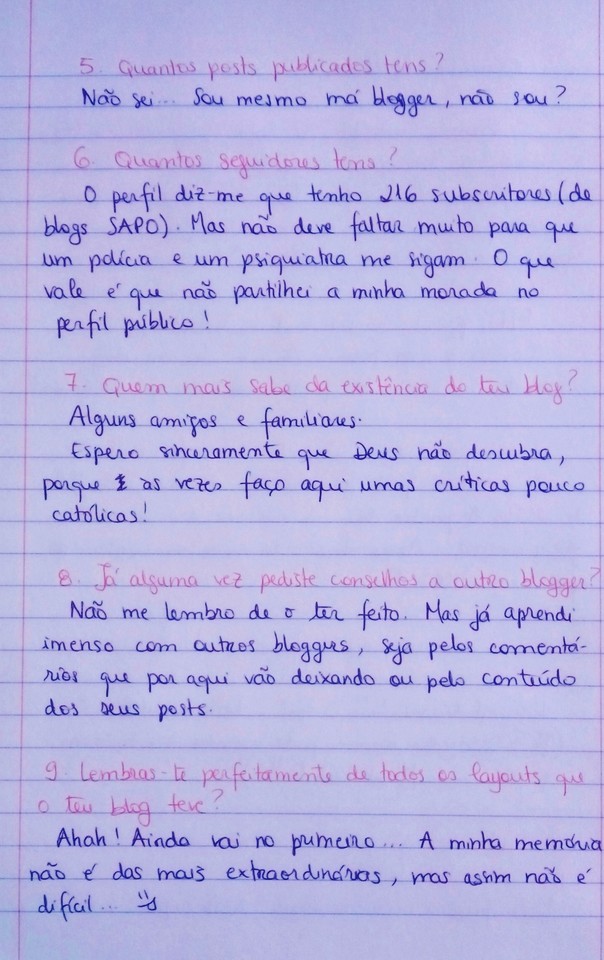 5. Quantos posts publicados tens?
Não sei... Sou mesmo má blogger, não sou?
6. Quantos seguidores tens?
O perfil diz-me que tenho 216 subscritores (de
blogs SAPO). Mas não deve faltar muito para que
um polícia e um psiquiatra me sigam. O que
vale é que não partilhei a minha morada no
perfil público!
7. Quem mais sabe da existência do teu blog?
Alguns amigos e familiares.
Espero sinceramente que Deus não descubra,
porque às vezes faço aqui umas críticas pouco
católicas!
8. Já alguma vez pediste conselhos a outro blogger?
Não me lembro de o ter feito. Mas já aprendi
imenso com outros bloggers, seja pelos comentá-
rios que por aqui vão deixando ou pelo conteúdo
dos seus posts.
9. Lembras-te perfeitamente de todos os layouts que
o teu blog teve?
Ahah! Ainda vai no primeiro... A minha memória
não é das mais extraordinárias, mas assim não é
difícil... =)